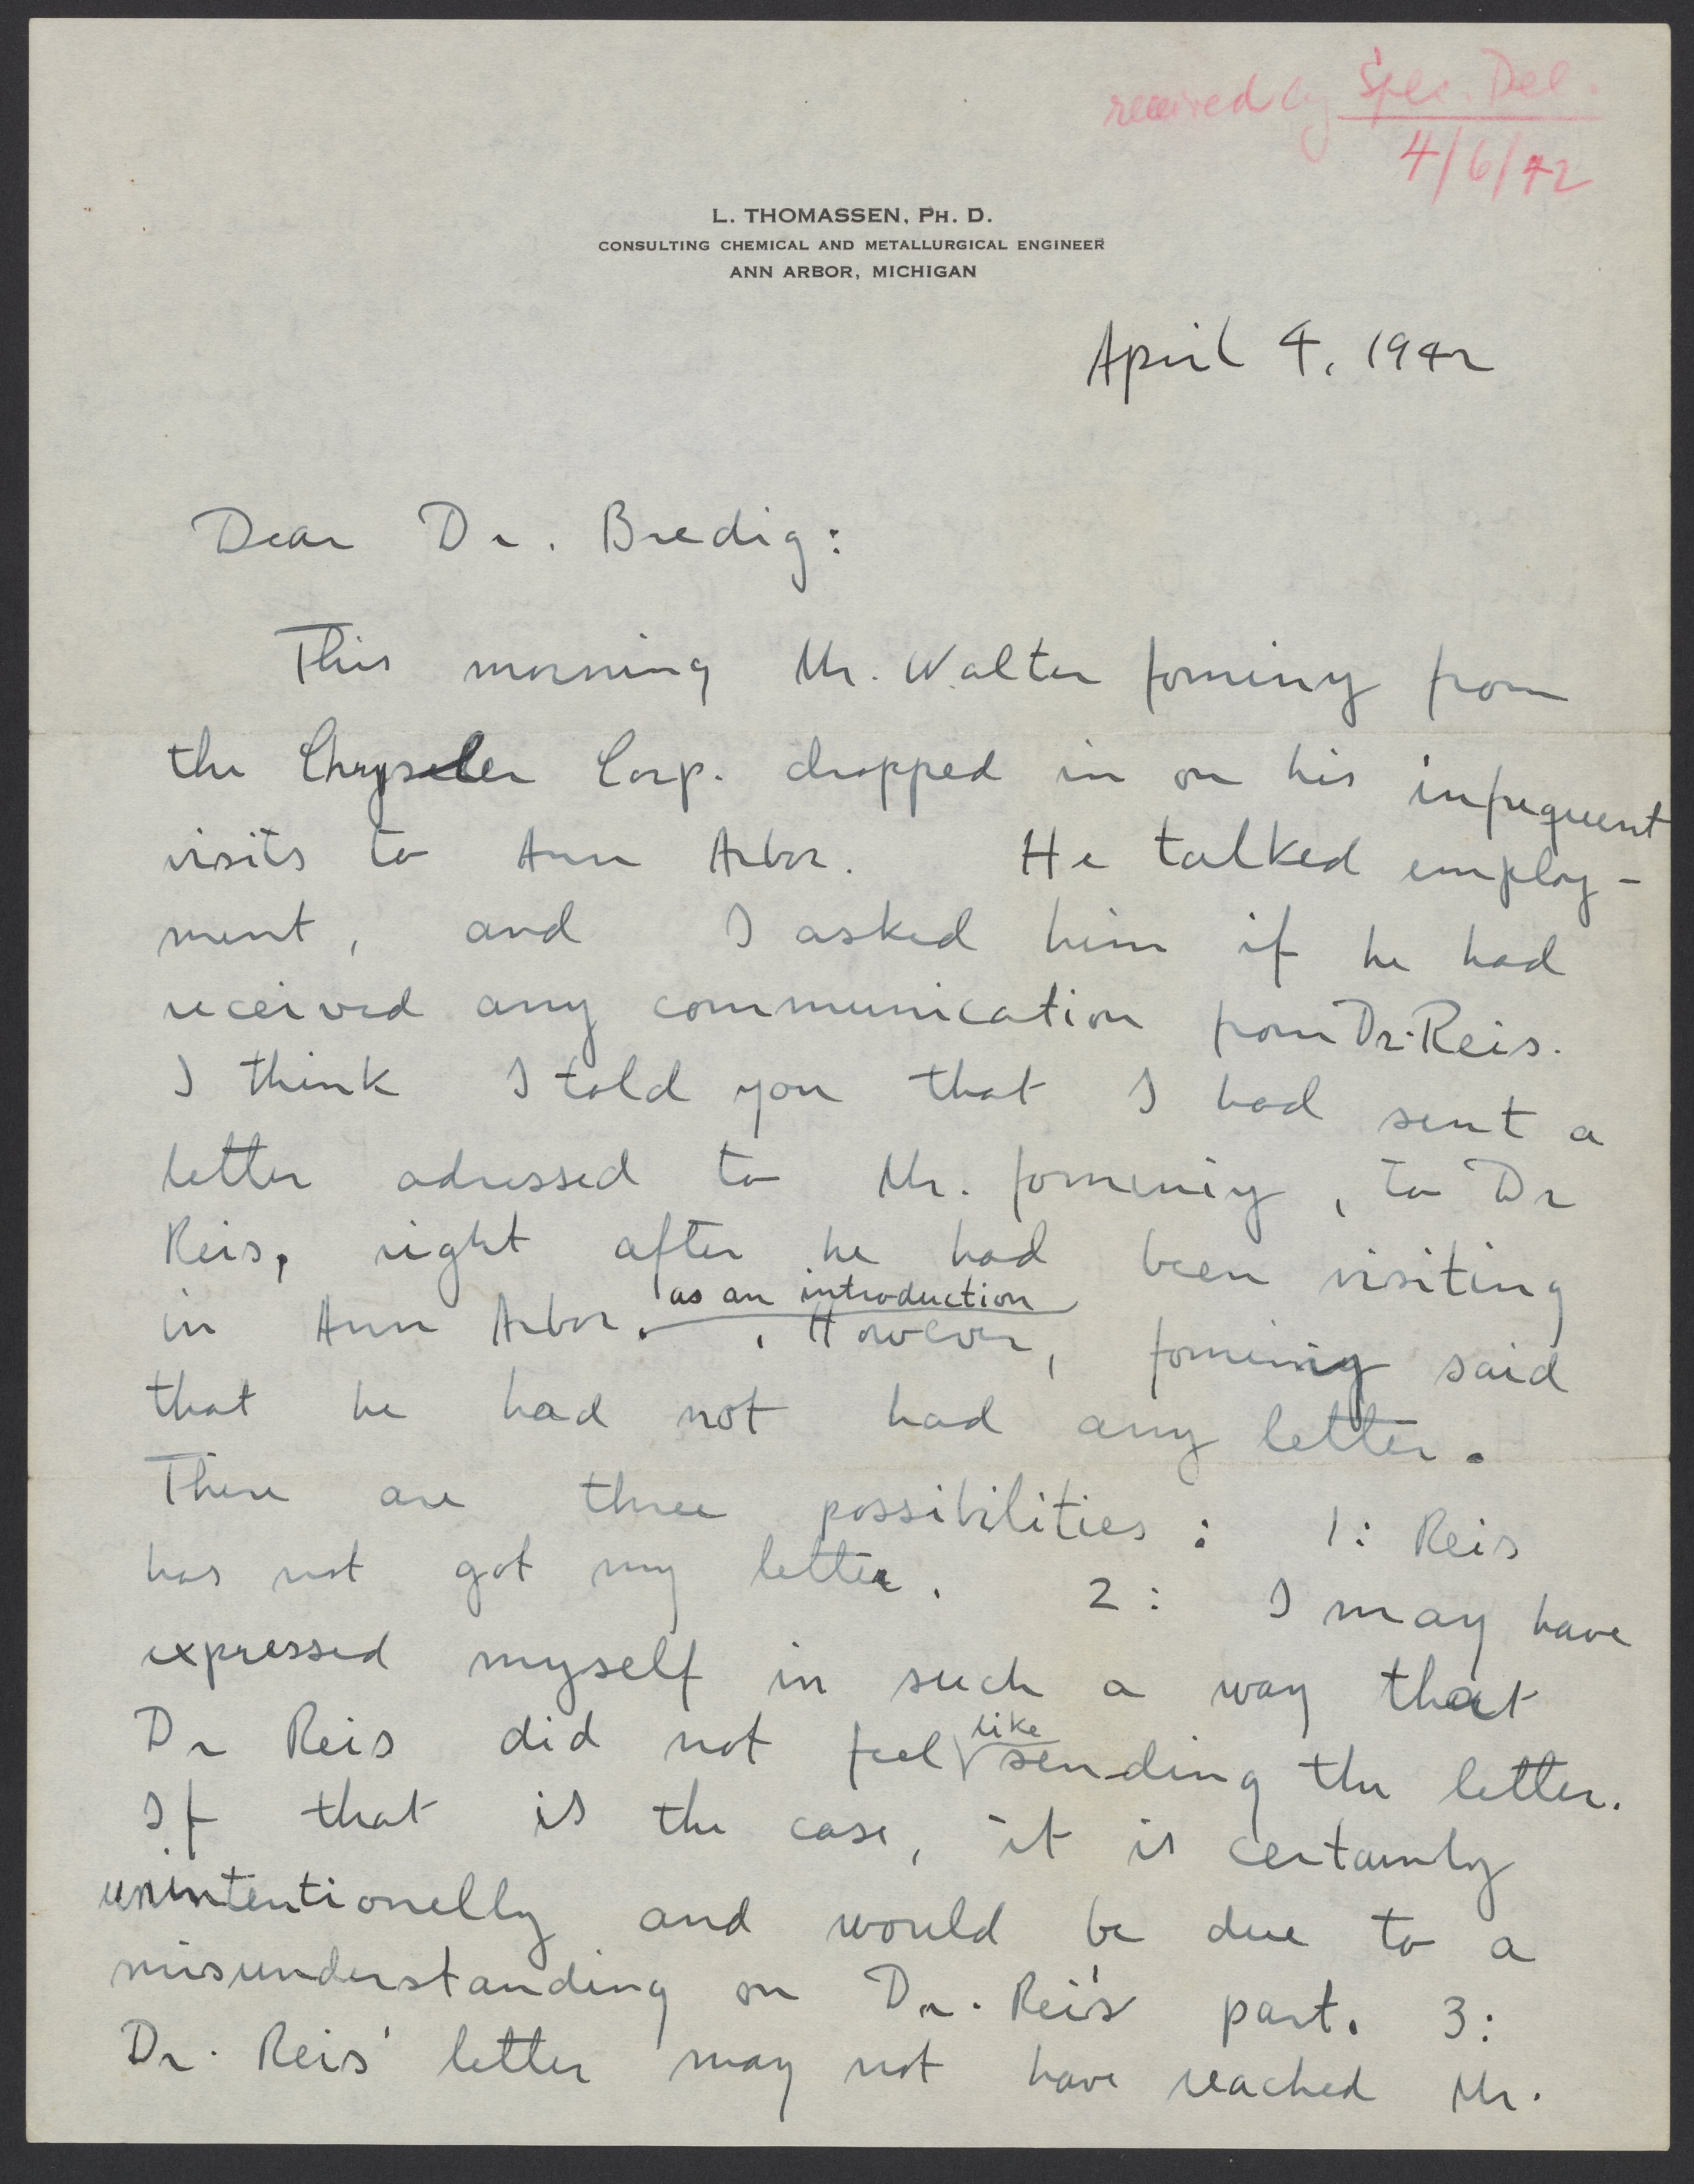 received by Spec. Del.
4/6/42
L. THOMASSEN, PH. D.
CONSULTING CHEMICAL AND METALLURGICAL ENGINEER
ANN ARBOR, MICHIGAN
April 4, 1942
Dear Dr. Bredig:
This morning Mr. Walter Jominy from
the Chrysler Corp. dropped in on his infrequent
visits to Ann Arbor. He talked employ-
ment, and I asked him if he had
received any communication from Dr. Reis.
I think I told you that I had sent a
letter adressed to Mr. Jominiy, to Dr
Reis, right after he had been visiting
as an introduction
in Ann Arbor. However, Jominy said
that he had not had any letter.
There are three possibilities: 1: Reis
has not got my letter. 2: I may have
expressed myself in such a way that
Dr Reis did not feel like sending the letter.
If that is the case, it is certainly
unintentionelly and would be due to a
misunderstanding on Dr. Reis' part. 3:
Dr. Reis' letter may not have reached Mr.